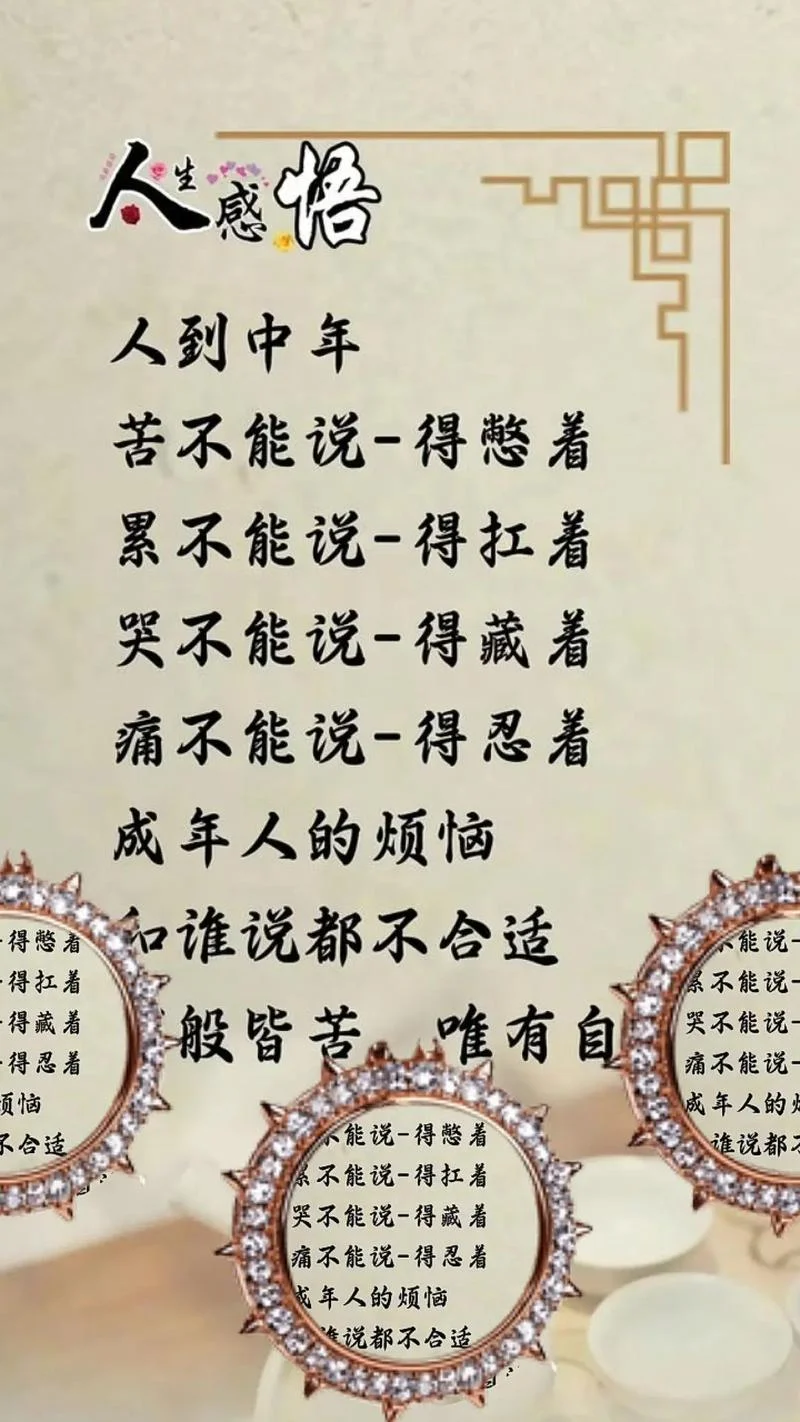 人生感悟
人到中年
苦不能说-得憋着
累不能说-得扛着
哭不能说-得藏着
痛不能说-得忍着
成年人的烦恼
和谁说都不合适
般皆苦 唯有自
-得憋着
-得扛着
-得藏着
-得忍着
烦恼
不合适
不能说-得憋着
累不能说-得扛着
哭不能说-得藏着
痛不能说-得忍着
成年人的烦恼
谁说都不合适
不能说-
累不能说-
哭不能说-
痛不能说-
成年人的烦
谁说都不